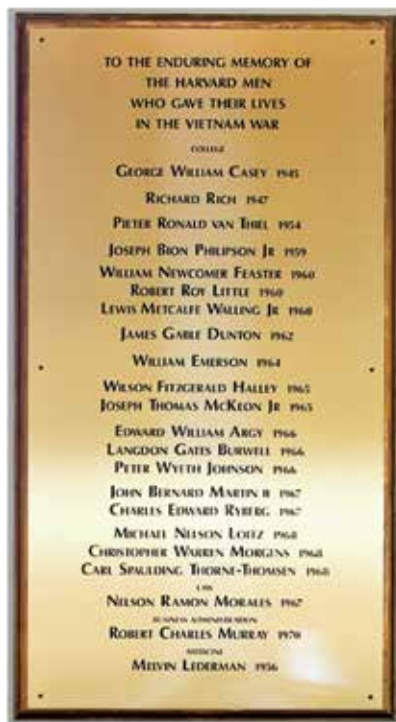 TO THE ENDURING MEMORY OF
THE HARVARD MEN
WHO GAVE THEIR LIVES
IN THE VIETNAM WAR
COLLEGE
GEORGE WILLIAM CASEY 1945
RICHARD RICH 1947
PIETER RONALD VAN THIEL 1954
JOSEPH BION PHILIPSON JR 1959
WILLIAM NEWCOMER FEASTER 1960
ROBERT ROY LITTLE 1960
LEWIS METCALFE WALLING JR 1960
JAMES GABLE DUNTON 1962
WILLIAM EMERSON 1964
WILSON FITZGERALD HALLEY 1965
JOSEPH THOMAS MCKEON JR 1965
EDWARD WILLIAM ARGY 1966
LANGDON GATES BURWELL 1966
PETER WYETH JOHNSON 1966
JOHN BERNARD MARTIN II 1967
CHARLES EDWARD RYBERG 1967
MICHAEL NELSON LOITZ 1968
CHRISTOPHER WARREN MORGENS 1968
CARL SPAULDING THORNE-THOMSEN 1968
LAW
NELSON RAMON MORALES 1967
BUSINESS ADMINISTRATION
ROBERT CHARLES MURRAY 1970
MEDICINE
MELVIN LEDERMAN 1956